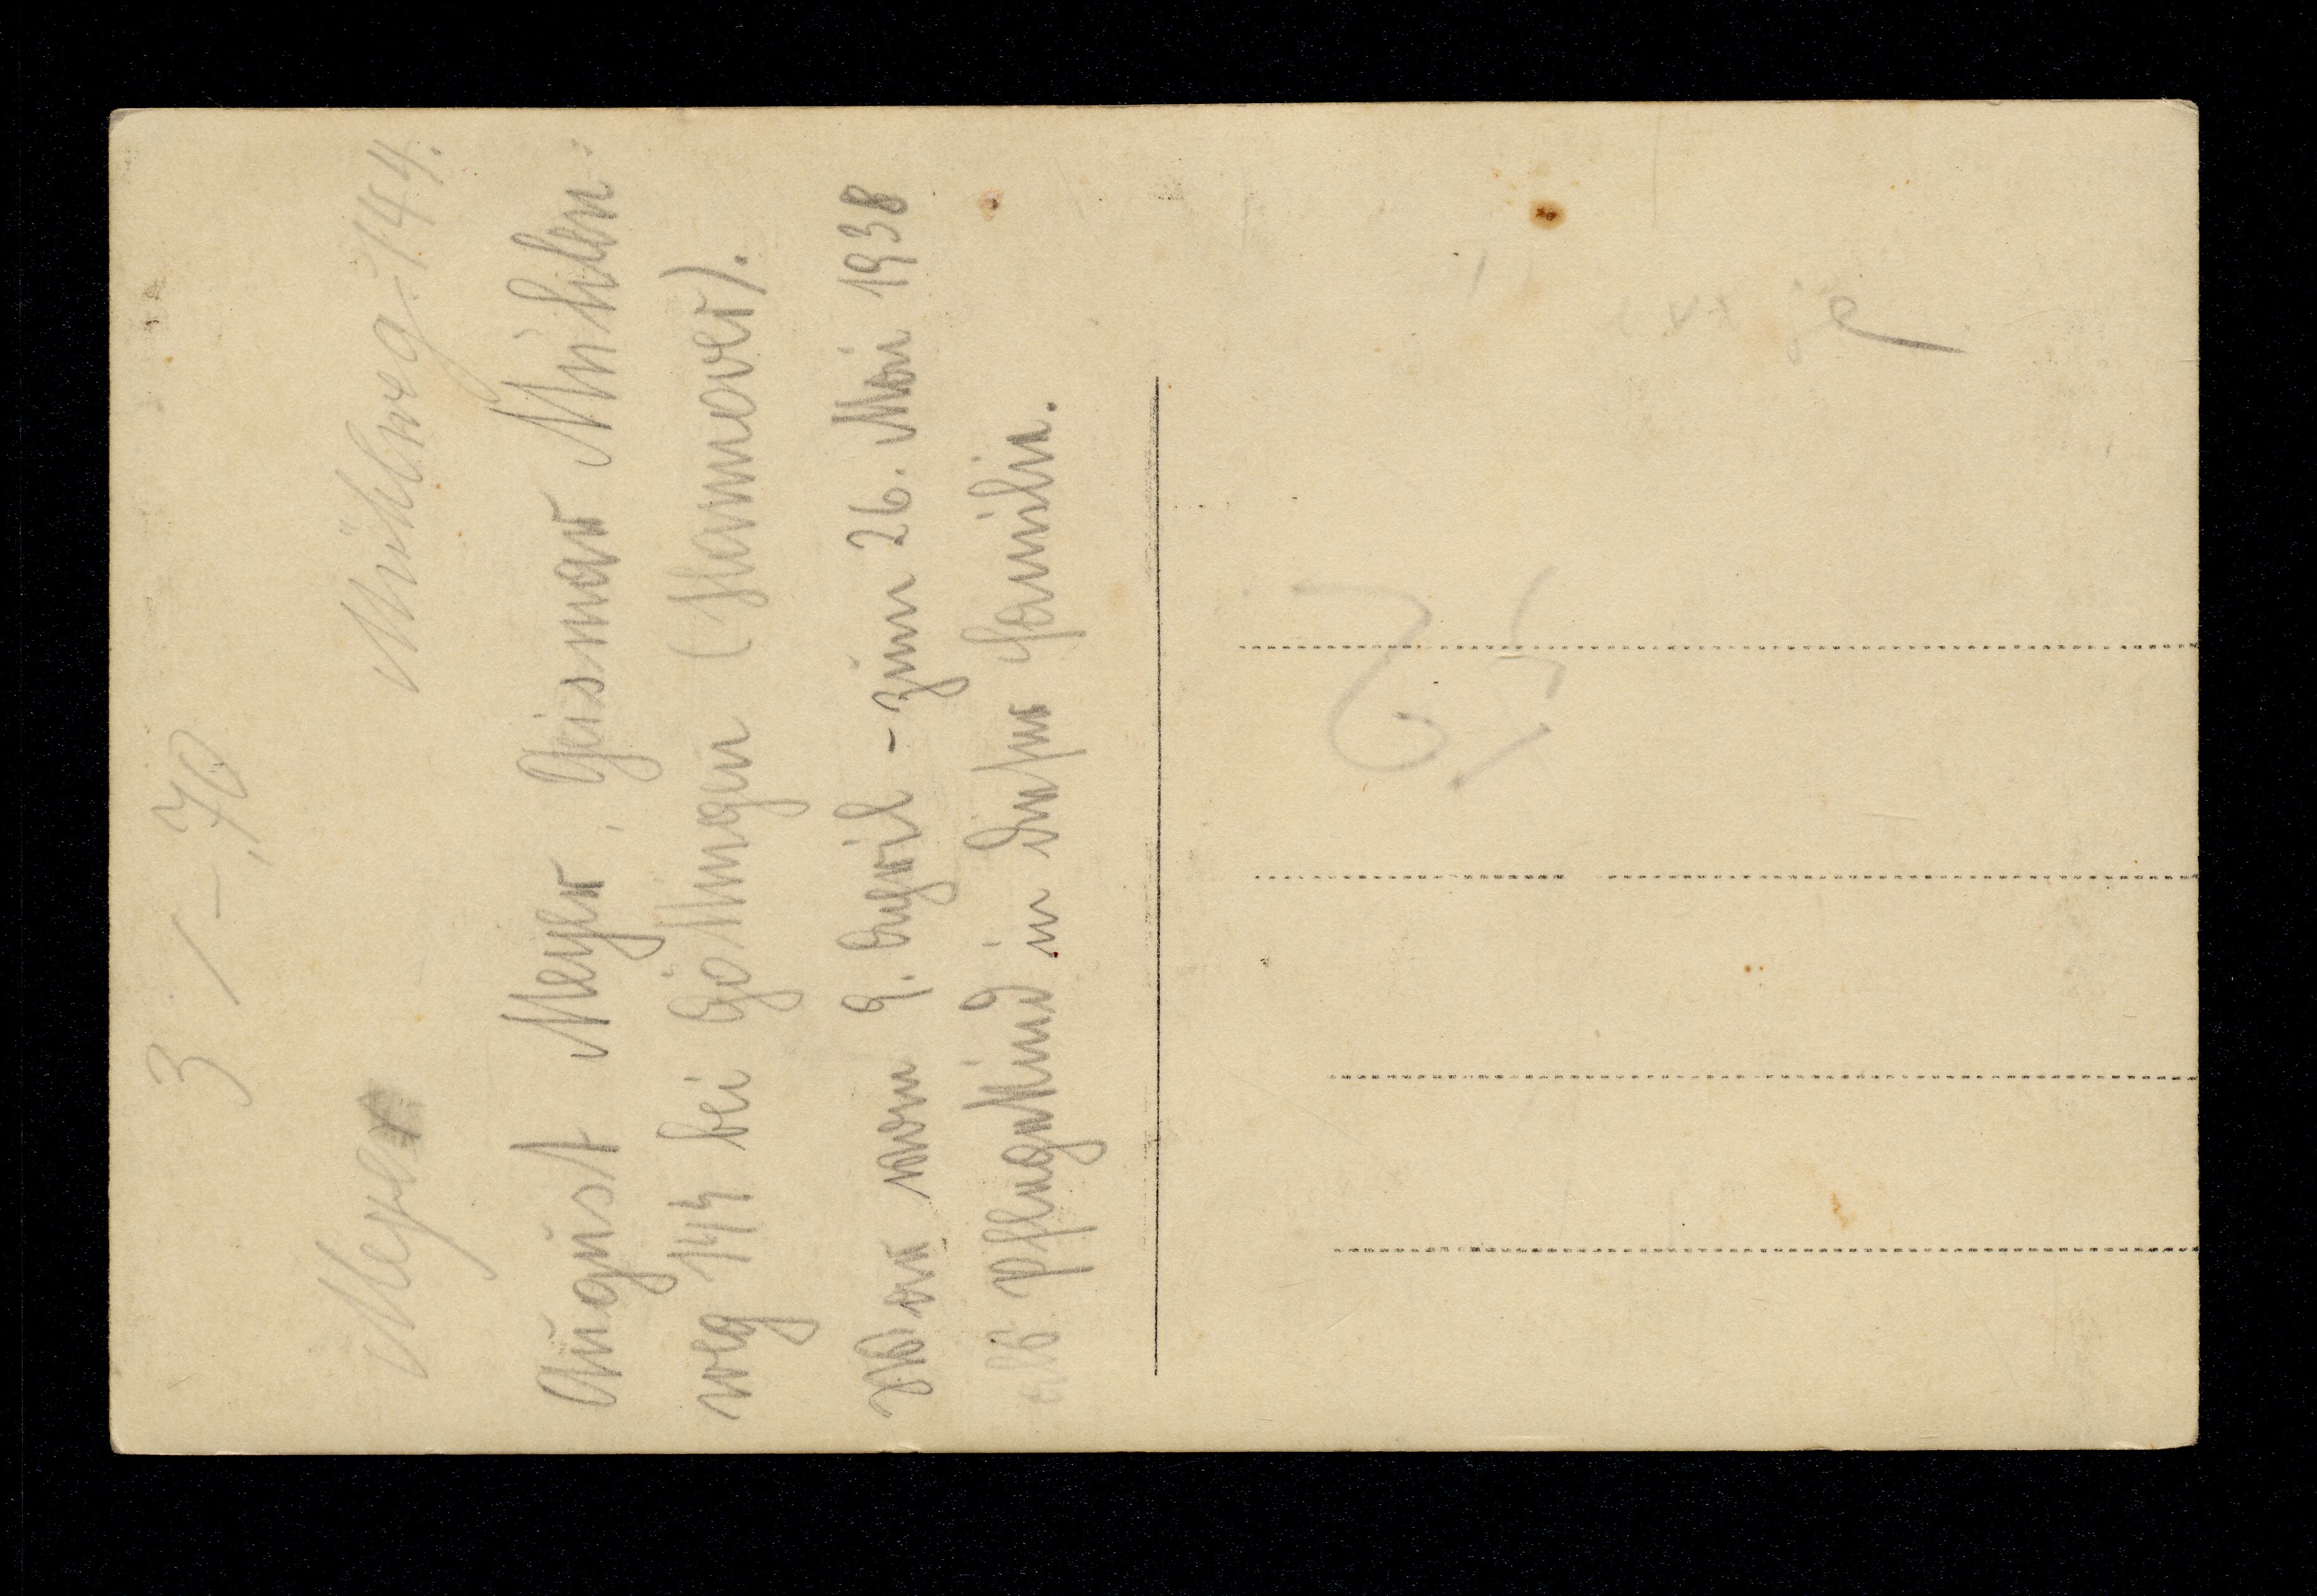 3 1 -,70
Meyer Mühlweg 144.
August Meyer, Geismar Mühlen=
weg 144 bei Göttingen (Hannover).
War vom 9. April - zum 26. Mai 1938
als Pflegekind in dieser Familie.